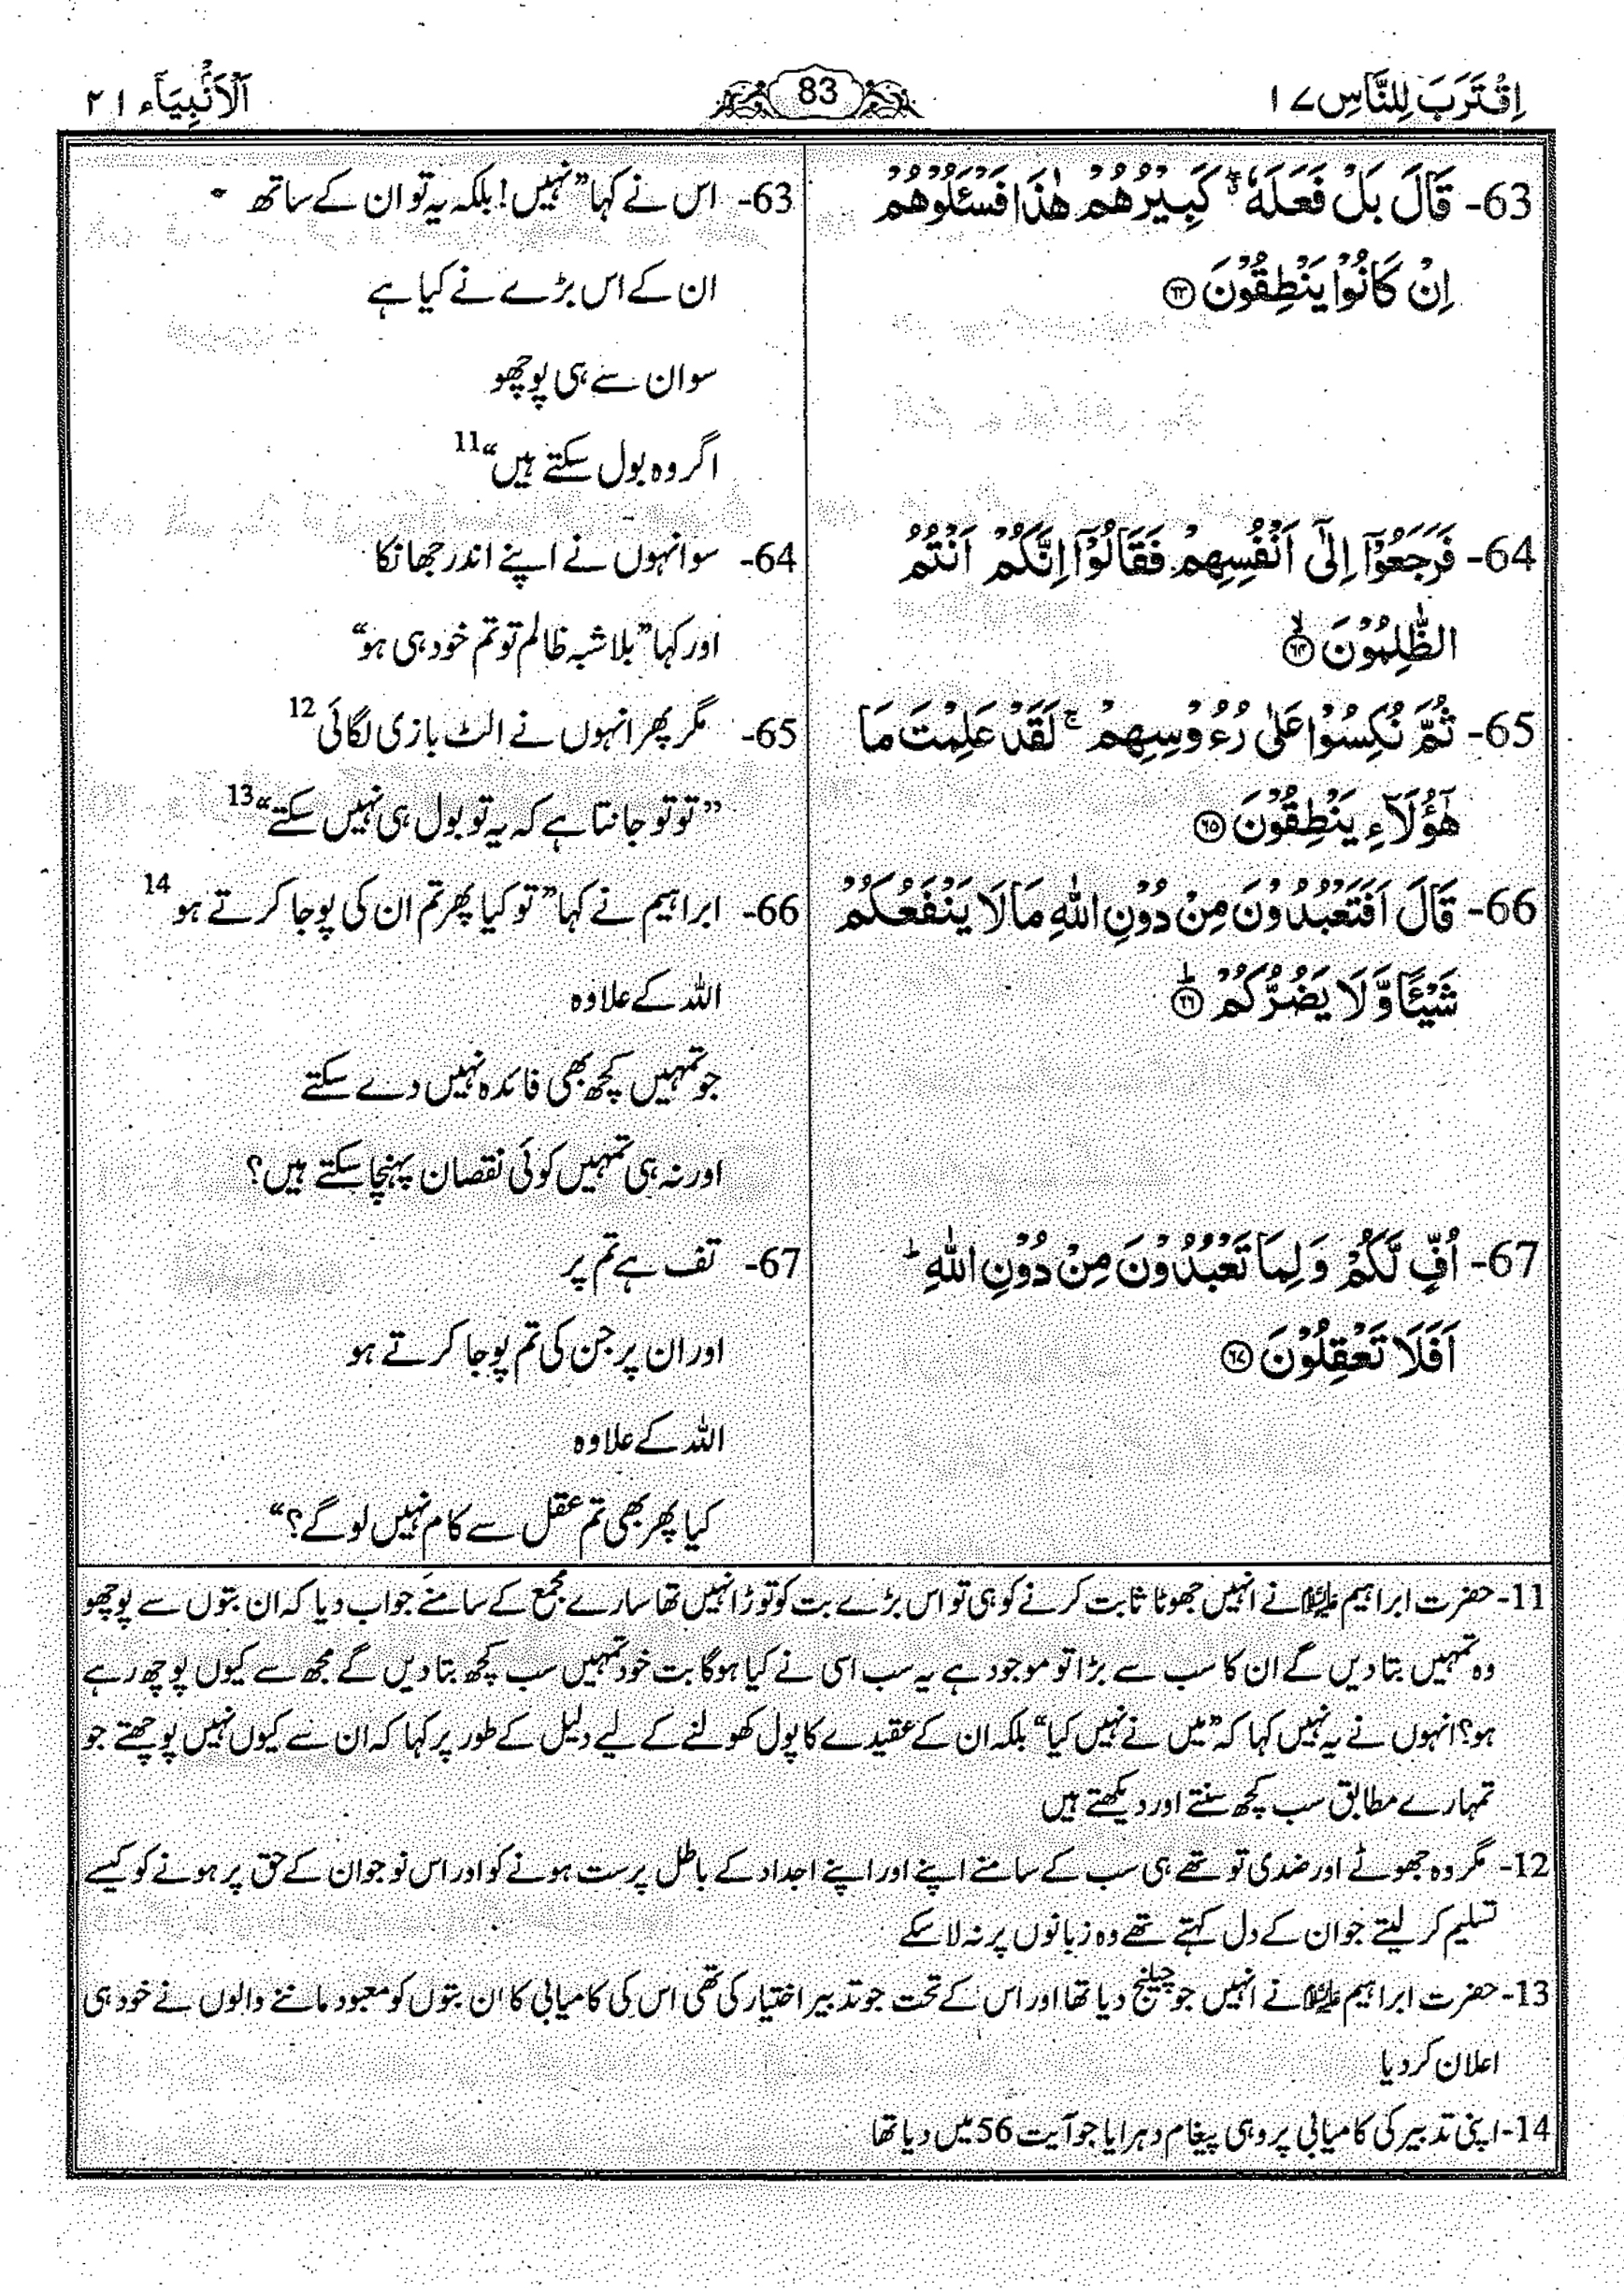 اِقْتَرَبَ لِلنَّاسِ ۱۷
83
اَلْاَنْۢبِيَآء ۲۱
63- قَالَ بَلْ فَعَلَهٗ ۖۗ كَبِيْرُهُمْ هٰذَا فَسْـَٔلُوْهُمْ
اِنْ كَانُوْا يَنْطِقُوْنَ ۝۶۳
64- فَرَجَعُوْۤا اِلٰۤى اَنْفُسِهِمْ فَقَالُوْۤا اِنَّكُمْ اَنْتُمُ
الظّٰلِمُوْنَ ۝۶۴ۙ
65- ثُمَّ نُكِسُوْا عَلٰى رُءُوْسِهِمْ ۚ لَقَدْ عَلِمْتَ مَا
هٰۤؤُلَآءِ يَنْطِقُوْنَ ۝۶۵
66- قَالَ اَفَتَعْبُدُوْنَ مِنْ دُوْنِ اللّٰهِ مَا لَا يَنْفَعُكُمْ
شَيْـًٔا وَّ لَا يَضُرُّكُمْ ۝۶۶ؕ
67- اُفٍّ لَّكُمْ وَ لِمَا تَعْبُدُوْنَ مِنْ دُوْنِ اللّٰهِ ؕ
اَفَلَا تَعْقِلُوْنَ ۝۶۷
63- اس نے کہا ”نہیں! بلکہ یہ تو ان کے ساتھ
ان کے اس بڑے نے کیا ہے
سو ان سے ہی پوچھو
اگر وہ بول سکتے ہیں“ 11
64- سو انہوں نے اپنے اندر جھانکا
اور کہا ”بلا شبہ ظالم تو تم خود ہی ہو“
65- مگر پھر انہوں نے الٹ بازی لگائی 12
”تو تو جانتا ہے کہ یہ تو بول ہی نہیں سکتے“ 13
66- ابراہیم نے کہا ”تو کیا پھر تم ان کی پوجا کرتے ہو 14
اللہ کے علاوہ
جو تمہیں کچھ بھی فائدہ نہیں دے سکتے
اور نہ ہی تمہیں کوئی نقصان پہنچا سکتے ہیں؟
67- تف ہے تم پر
اور ان پر جن کی تم پوجا کرتے ہو
اللہ کے علاوہ
کیا پھر بھی تم عقل سے کام نہیں لو گے؟“
11- حضرت ابراہیم علیہ السلام نے انہیں جھوٹا ثابت کرنے کو ہی تو اس بڑے بت کو توڑا نہیں تھا سارے مجمع کے سامنے جواب دیا کہ ان بتوں سے پوچھو
وہ تمہیں بتا دیں گے ان کا سب سے بڑا تو موجود ہے یہ سب اسی نے کیا ہوگا بت خود تمہیں سب کچھ بتا دیں گے مجھ سے کیوں پوچھ رہے
ہو؟ انہوں نے یہ نہیں کہا کہ ”میں نے نہیں کیا“ بلکہ ان کے عقیدے کا پول کھولنے کے لیے دلیل کے طور پر کہا کہ ان سے کیوں نہیں پوچھتے جو
تمہارے مطابق سب کچھ سنتے اور دیکھتے ہیں
12- مگر وہ جھوٹے اور ضدی تو تھے ہی سب کے سامنے اپنے اور اپنے اجداد کے باطل پرست ہونے کو اور اس نوجوان کے حق پر ہونے کو کیسے
تسلیم کر لیتے جو ان کے دل کہتے تھے وہ زبانوں پر نہ لا سکے
13- حضرت ابراہیم علیہ السلام نے انہیں جو چیلنج دیا تھا اور اس کے تحت جو تدبیر اختیار کی تھی اس کی کامیابی کا ان بتوں کو معبود ماننے والوں نے خود ہی
اعلان کر دیا
14- اپنی تدبیر کی کامیابی پر وہی پیغام دہرایا جو آیت 56 میں دیا تھا